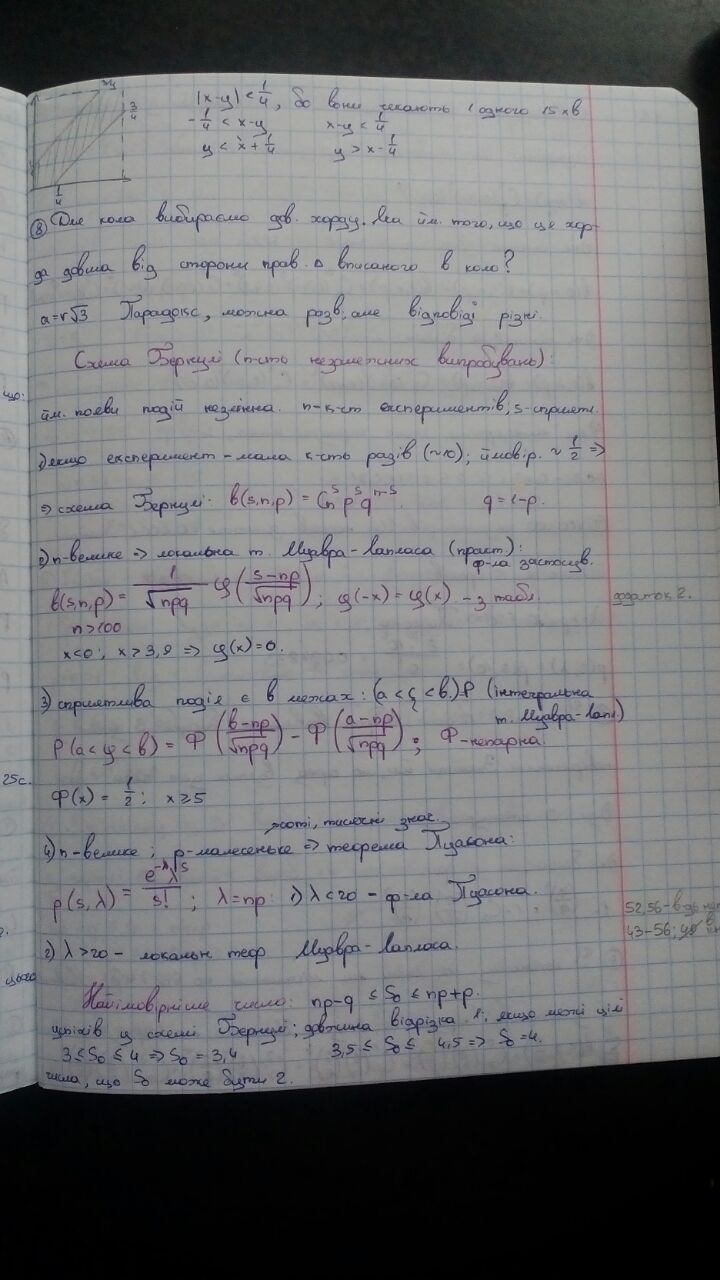 |x-y| < 1/4, бо вони чекають 1 одного 15 хв
-1/4 < x-y x-y < 1/4
y < x + 1/4 y > x - 1/4
3/4
1/4
⑧ Для кола вибираємо дов. хорду. Яка йм. того, що ця хор-
да довша від сторони прав. Δ вписаного в коло?
a=r√3 Парадокс, можна розв, але відповіді різні.
Схема Бернулі (п-сть незалежних випробувань):
що:
йм. появи подій незмінна. n-к-ст експериментів, s-сприятл.
1) якщо експеримент - мала к-сть разів (~10); ймовір. ~ 1/2 =>
=> схема Бернулі: b(s,n,p) = C_n^s p^s q^{n-s}. q = 1-p.
2) n-велике => локальна т. Муавра-Лапласа (практ):
ф-ла застосув.
b(s,n,p) = 1/√npq φ((s-np)/√npq); φ(-x) = φ(x) - з табл.
додаток 2.
n>100
x<0; x≥3,9 => φ(x)=0.
3) сприятлива подія є в межах: (a<ξ<b)-P (інтегральна
т. Муавра-Лапл)
P(a<y<b) = Ф((b-np)/√npq) - Ф((a-np)/√npq); Ф-непарна.
25с.
Ф(x) = 1/2; x≥5
соті, тисячні знач.
4) n-велике; p-малесеньке => теорема Пуасона:
p(s,λ) = e^{-λ}λ^s/s!; λ=np: 1) λ<20 - ф-ла Пуасона.
52,56-в
43-56;
2) λ>20 - локальн теор Муавра-Лапласа.
цього
Найімовірніше число: np-q ≤ S₀ ≤ np+p.
успіхів у схемі Бернулі; довжина відрізка 1; якщо межі цілі
3≤S₀≤4 => S₀=3,4 3,5≤S₀≤4,5 => S₀=4.
числа, що S₀ може бути 2.